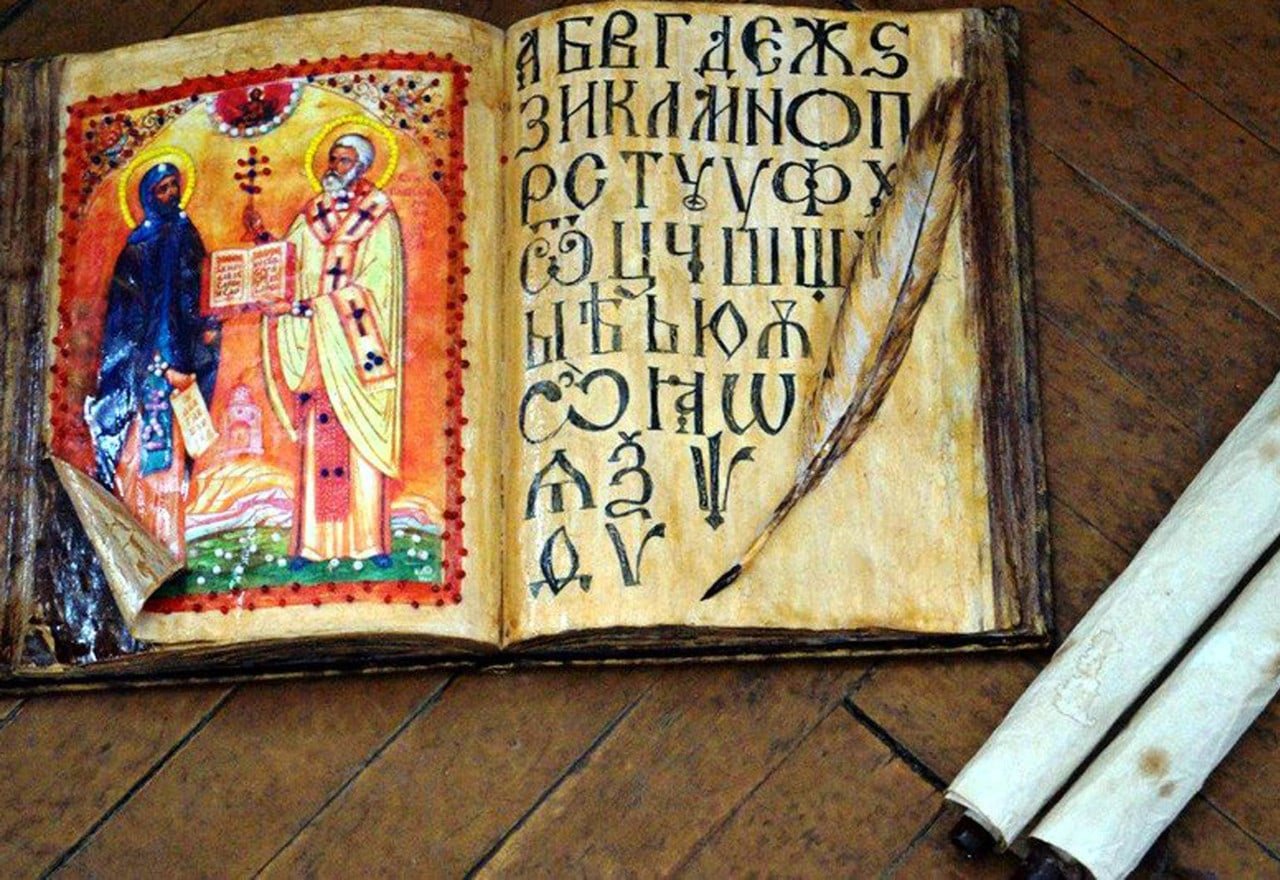 А Б В Г Д Є Ж Ѕ
З И К Л М Н О П
Р С Т Ꙋ У Ф Х
Ѿ Ц Ч Ш Щ
Ы Ѣ Ъ Ю Ѫ
Ѽ Ꙗ Ѡ
Ѧ Ѯ Ѱ
Ѳ Ѵ